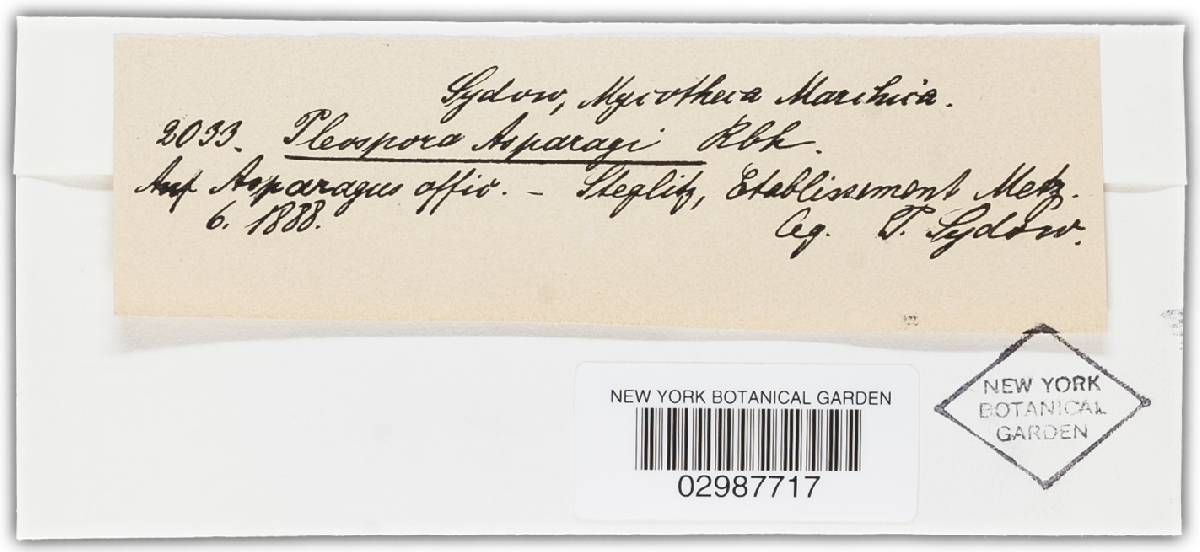 Sydow, Mycotheca Marchica.
2033. Pleospora Asparagi Rbh.
Auf Asparagus offic. – Steglitz, Etablissement Metz.
6. 1888. leg. P. Sydow.
NEW YORK BOTANICAL GARDEN
02987717
NEW YORK
BOTANICAL
GARDEN